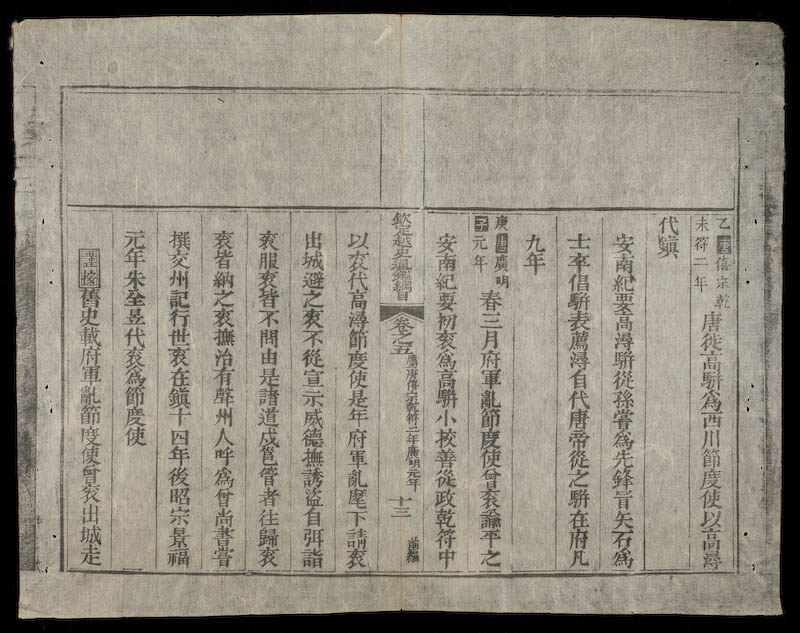 乙唐僖宗乾
未符二年
唐徙高駢為西川節度使以高潯
代鎮
安南紀要高潯駢從孫嘗為先鋒冒矢石為
士卒倡駢表薦潯自代唐帝從之駢在府凡
九年
庚唐廣明
子元年
春三月府軍亂節度使曾袞諭平之
安南紀要初袞為高駢小校善從政乾符中
欽定越史通鑑綱目 卷之五 屬唐僖宗乾符二年廣明元年 十三 前編
以袞代高潯節度使是年府軍亂麾下請袞
出城避之袞不從宣示威德撫誘盜自弭詣
袞服袞皆不問由是諸道戍邕管者往歸袞
袞皆納之袞撫治有聲州人呼為曾尚書嘗
撰交州記行世袞在鎮十四年後昭宗景福
元年朱全昱代袞為節度使
謹按舊史載府軍亂節度使曾袞出城走